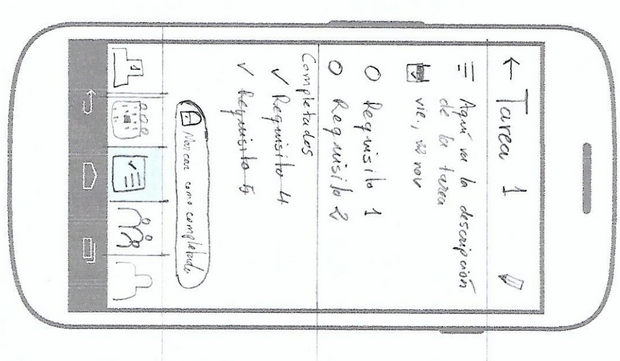 ← Tarea 1
Aquí va la descripción
de la tarea
vie., 22 nov
Requisito 1
Requisito 2
Completados
✓ Requisito 4
✓ Requisito 5
Marcar como completado
1